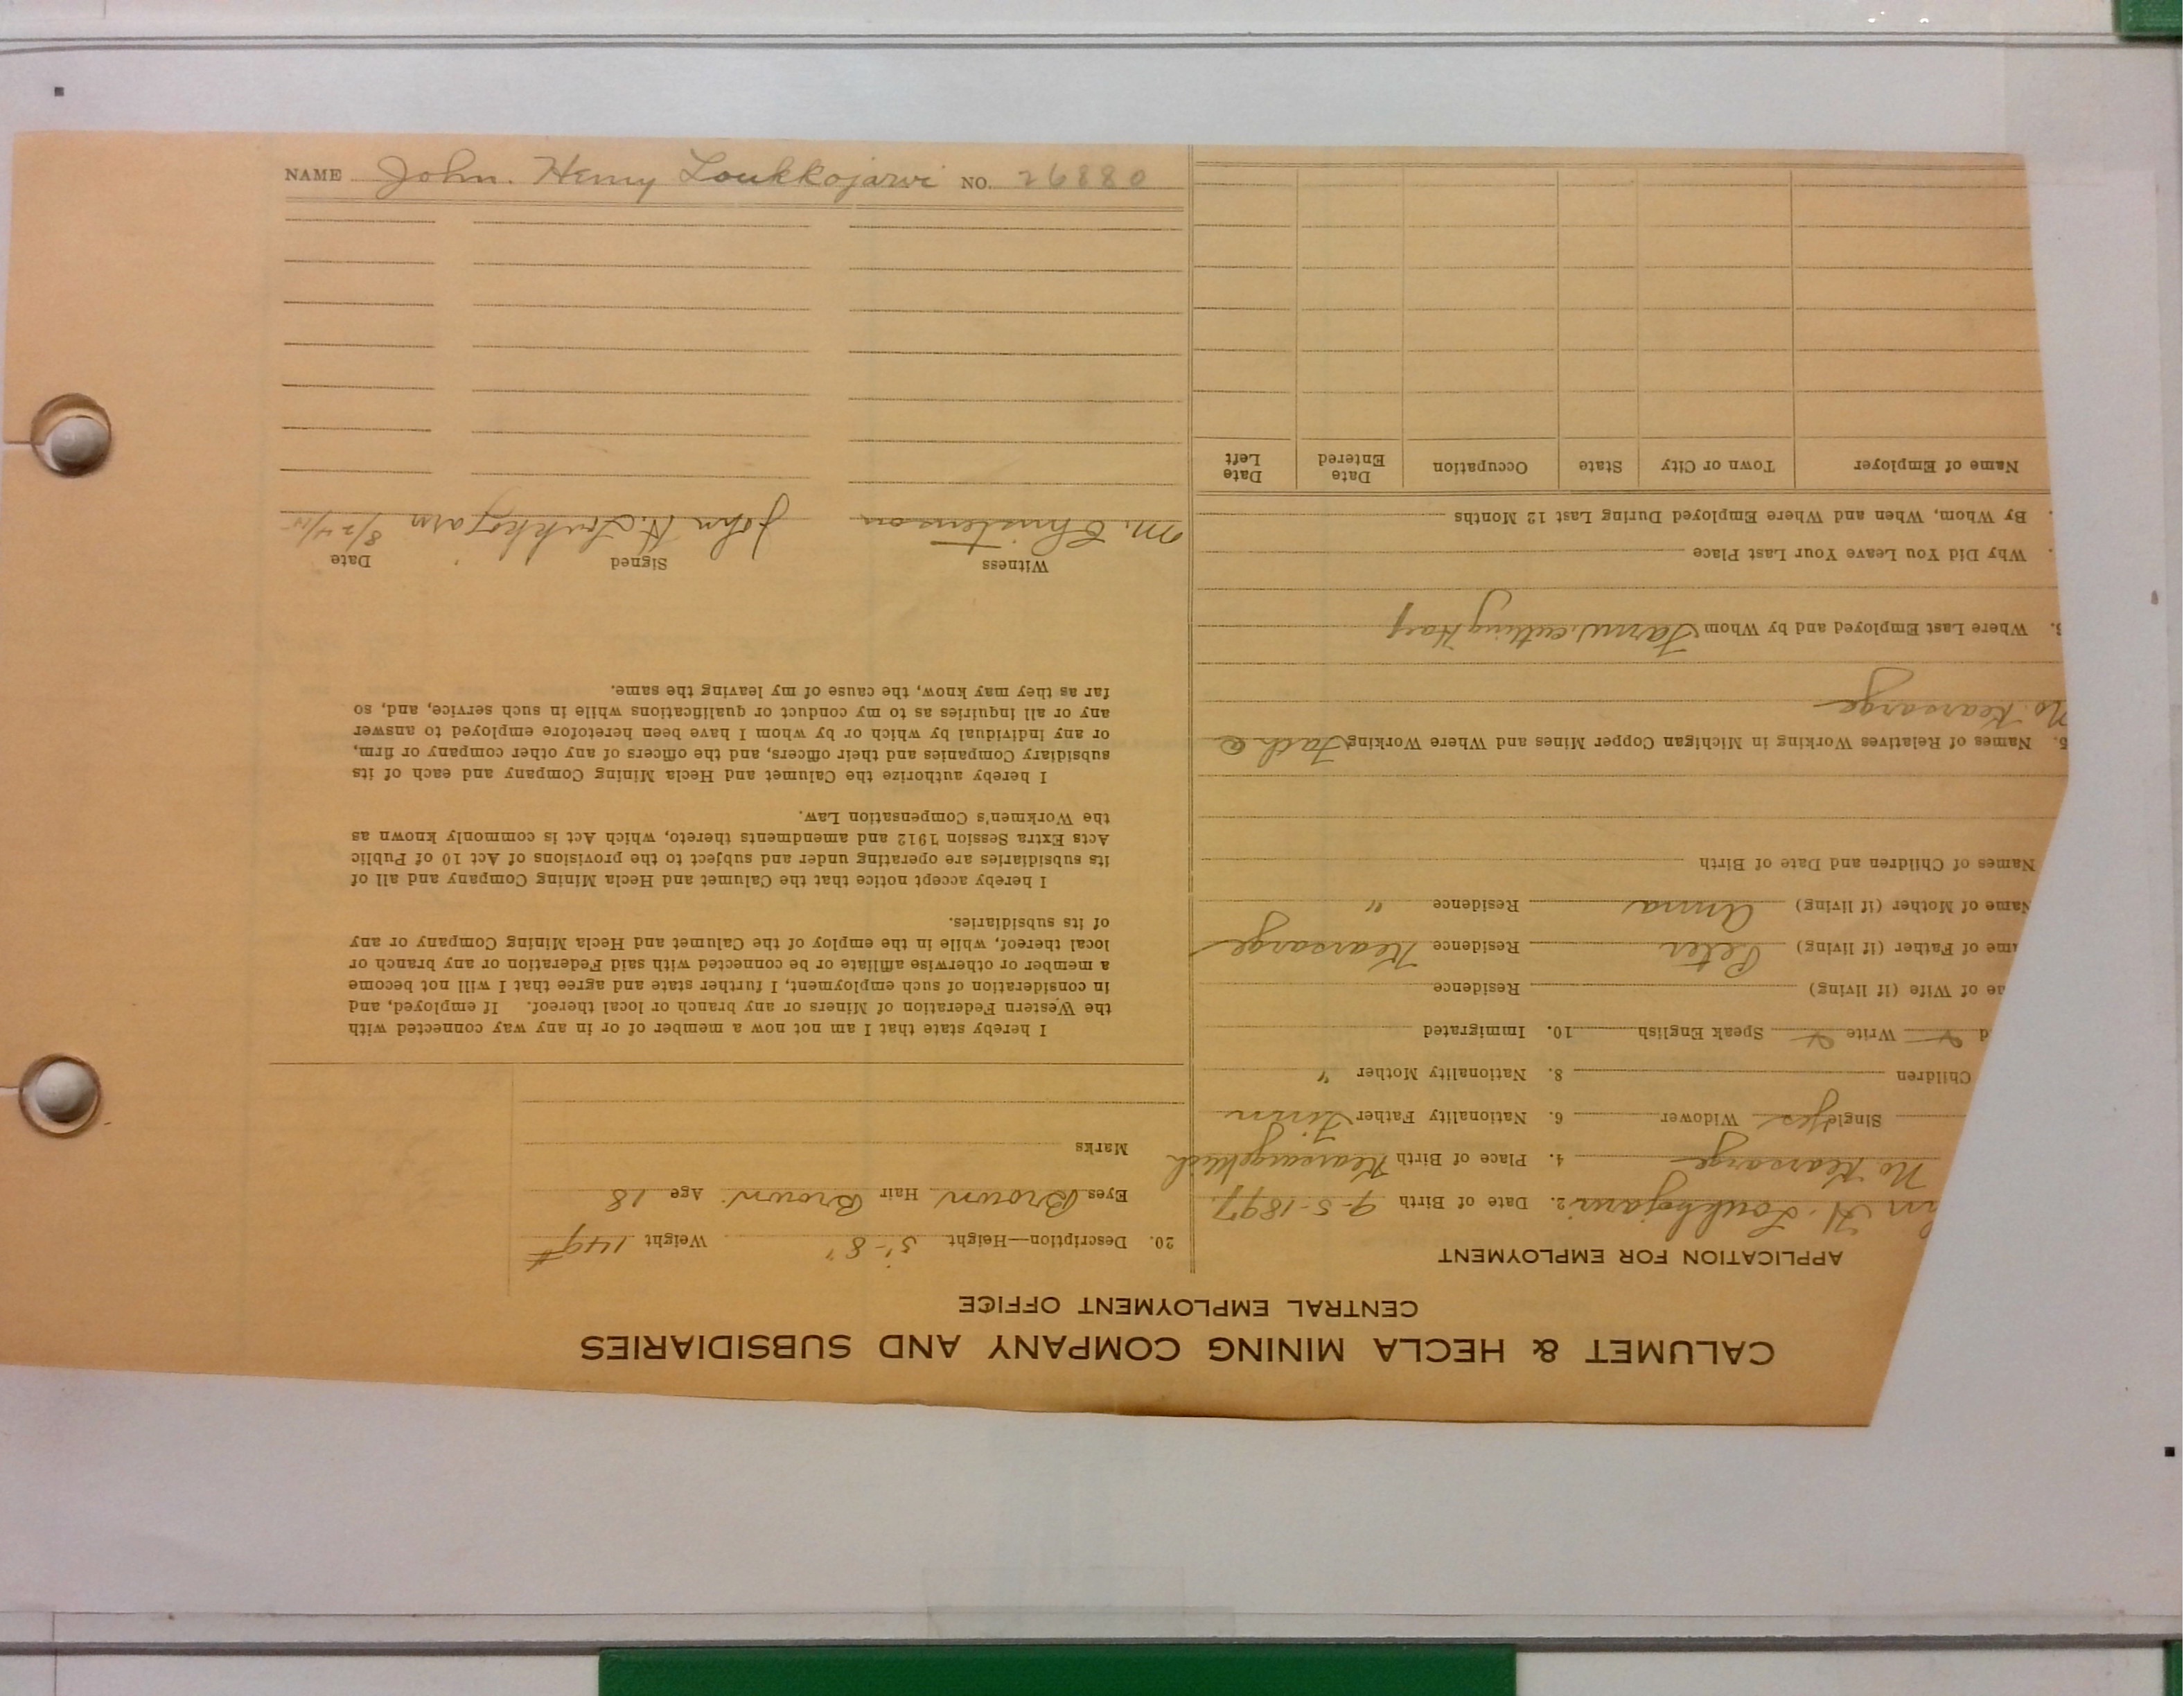 NAME John. Henry Loukkojarvi NO. 26880
CALUMET & HECLA MINING COMPANY AND SUBSIDIARIES
CENTRAL EMPLOYMENT OFFICE
APPLICATION FOR EMPLOYMENT
H. Loukkojarvi 2. Date of Birth 9-5-1897
No Kearsarge 4. Place of Birth Kearsarge Mich
Single yes Widower 6. Nationality Father Finn
Children 8. Nationality Mother "
Write Speak English 10. Immigrated
me of Wife (if living) Residence
me of Father (if living) Peter Residence Kearsarge
Name of Mother (if living) Anna Residence "
Names of Children and Date of Birth
5. Names of Relatives Working in Michigan Copper Mines and Where Working Fath @
No. Kearsarge
Where Last Employed and by Whom Farm cutting Hay
Why Did You Leave Your Last Place
By Whom, When and Where Employed During Last 12 Months
Name of Employer Town or City State Occupation Date Entered Date Left
20. Description—Height 5'-8" Weight 149#
Eyes Brown Hair Brown Age 18
Marks
I hereby state that I am not now a member of or in any way connected with
the Western Federation of Miners or any branch or local thereof. If employed, and
in consideration of such employment, I further state and agree that I will not become
a member or otherwise affiliate or be connected with said Federation or any branch or
local thereof, while in the employ of the Calumet and Hecla Mining Company or any
of its subsidiaries.
I hereby accept notice that the Calumet and Hecla Mining Company and all of
its subsidiaries are operating under and subject to the provisions of Act 10 of Public
Acts Extra Session 1912 and amendments thereto, which Act is commonly known as
the Workmen's Compensation Law.
I hereby authorize the Calumet and Hecla Mining Company and each of its
subsidiary Companies and their officers, and the officers of any other company or firm,
or any individual by which or by whom I have been heretofore employed to answer
any or all inquiries as to my conduct or qualifications while in such service, and, so
far as they may know, the cause of my leaving the same.
Witness Signed Date
M. Christenson John H. Loukkojarvi 8/24/15